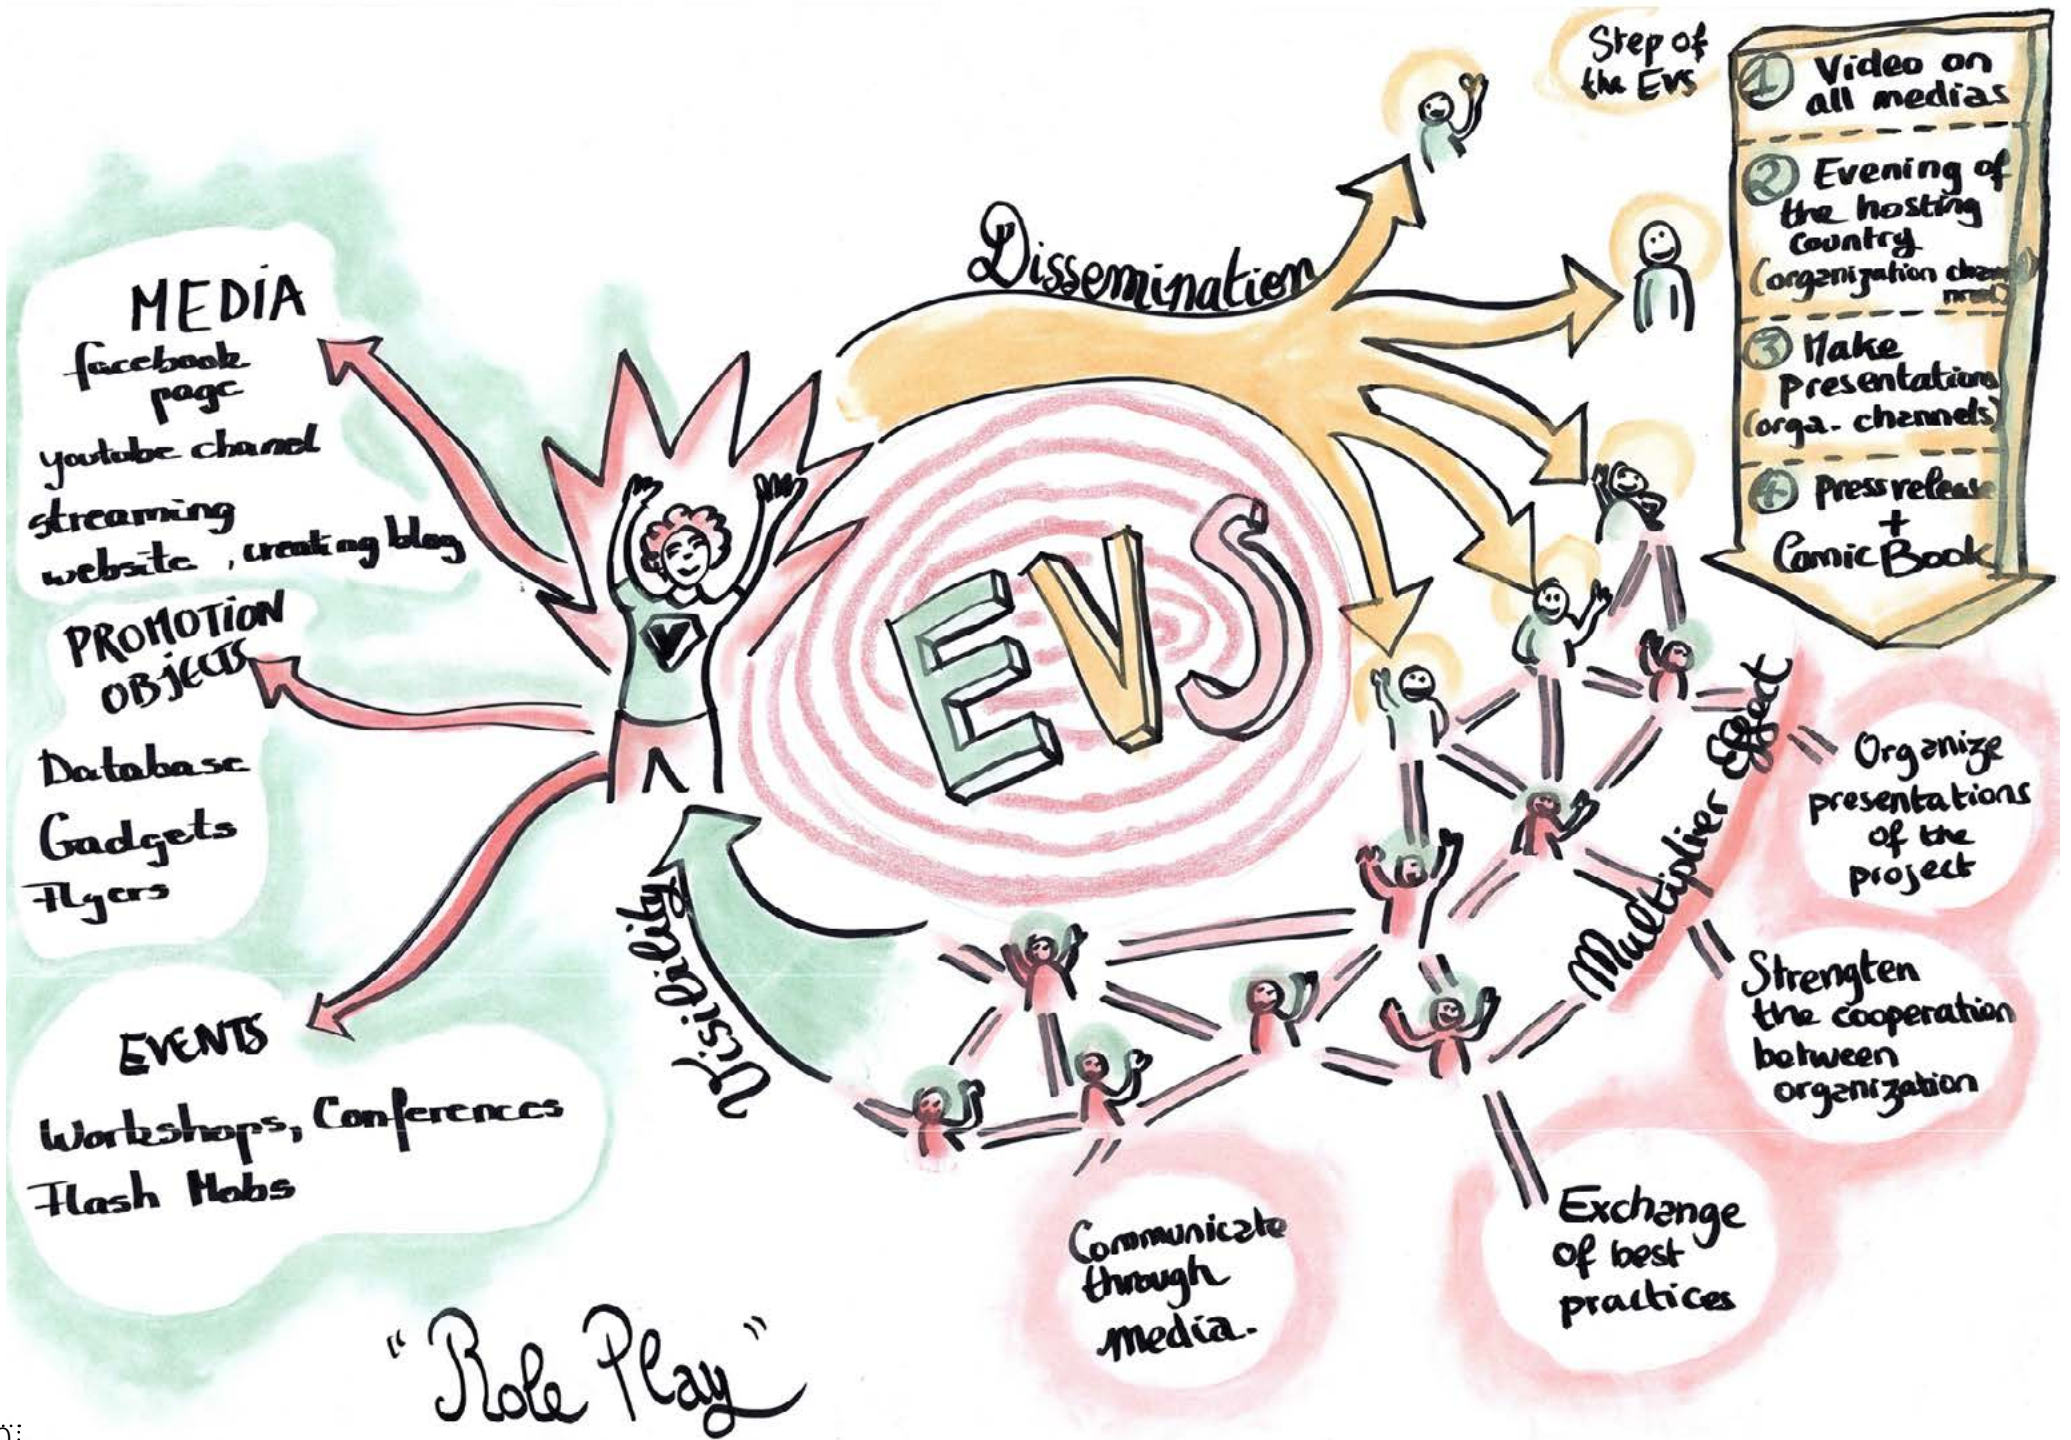 MEDIA
facebook
page
youtube chanel
streaming
website, creating blog
PROMOTION
OBJECTS
Database
Gadgets
Flyers
EVENTS
Workshops, Conferences
Flash Mobs
"Role Play"
Dissemination
EVS
Visibility
Multiplier Effect
Step of
the EVS
1 Video on
all medias
2 Evening of
the hosting
country
(organization
3 Make
presentations
(orga. channels)
4 Press release
+
Comic Book
Organize
presentations
of the
project
Strengten
the cooperation
between
organization
Exchange
of best
practices
Communicate
through
media.